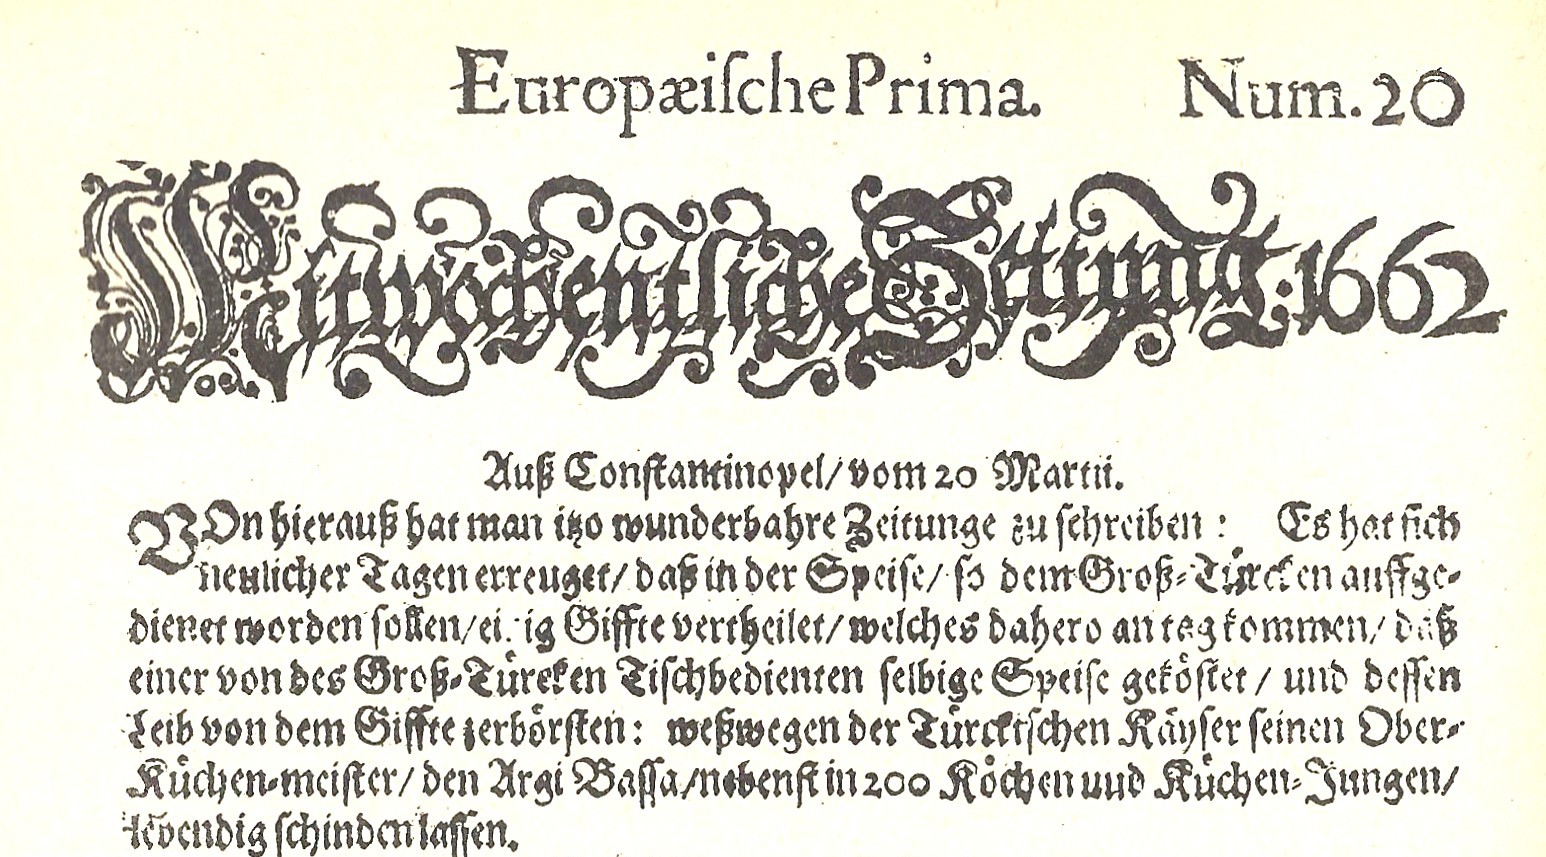 Europæiſche Prima. Num. 20
Weitwöchentliche Zeittung. 1662
Auß Conſtantinopel/ vom 20 Martii.
VOn hierauß hat man itzo wunderbahre Zeitunge zu ſchreiben: Es hat ſich
neulicher Tagen erreuget/ daß in der Speiſe/ ſo dem Groß-Türcken auffge-
dienet worden ſollen/ Giffte vertheilet/ welches dahero an tag kommen/ daß
einer von des Groß-Türcken Tiſchbedienten ſelbige Speiſe geköſtet/ und deſſen
Leib von dem Giffte zerbörſten: weßwegen der Türckiſchen Käyſer ſeinen Ober-
Küchen-meiſter/ den Argi Baſſa/ nebenſt in 200 Köchen uud Küchen-Jungen/
lebendig ſchinden laſſen.